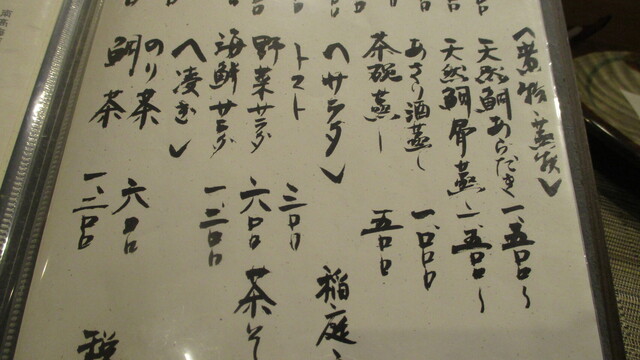 〈煮物・蒸焼〉
天然鯛あらだき 一、五〇〇〜
天然鯛骨蒸し 一、五〇〇〜
あさり酒蒸し 一、〇〇〇
茶碗蒸し 五〇〇
〈サラダ〉
トマト 三〇〇
野菜サラダ 六〇〇
海鮮サラダ 一、二〇〇
〈凌ぎ〉
のり茶 六〇〇
鯛茶 一、二〇〇
稲庭う
茶そ
税